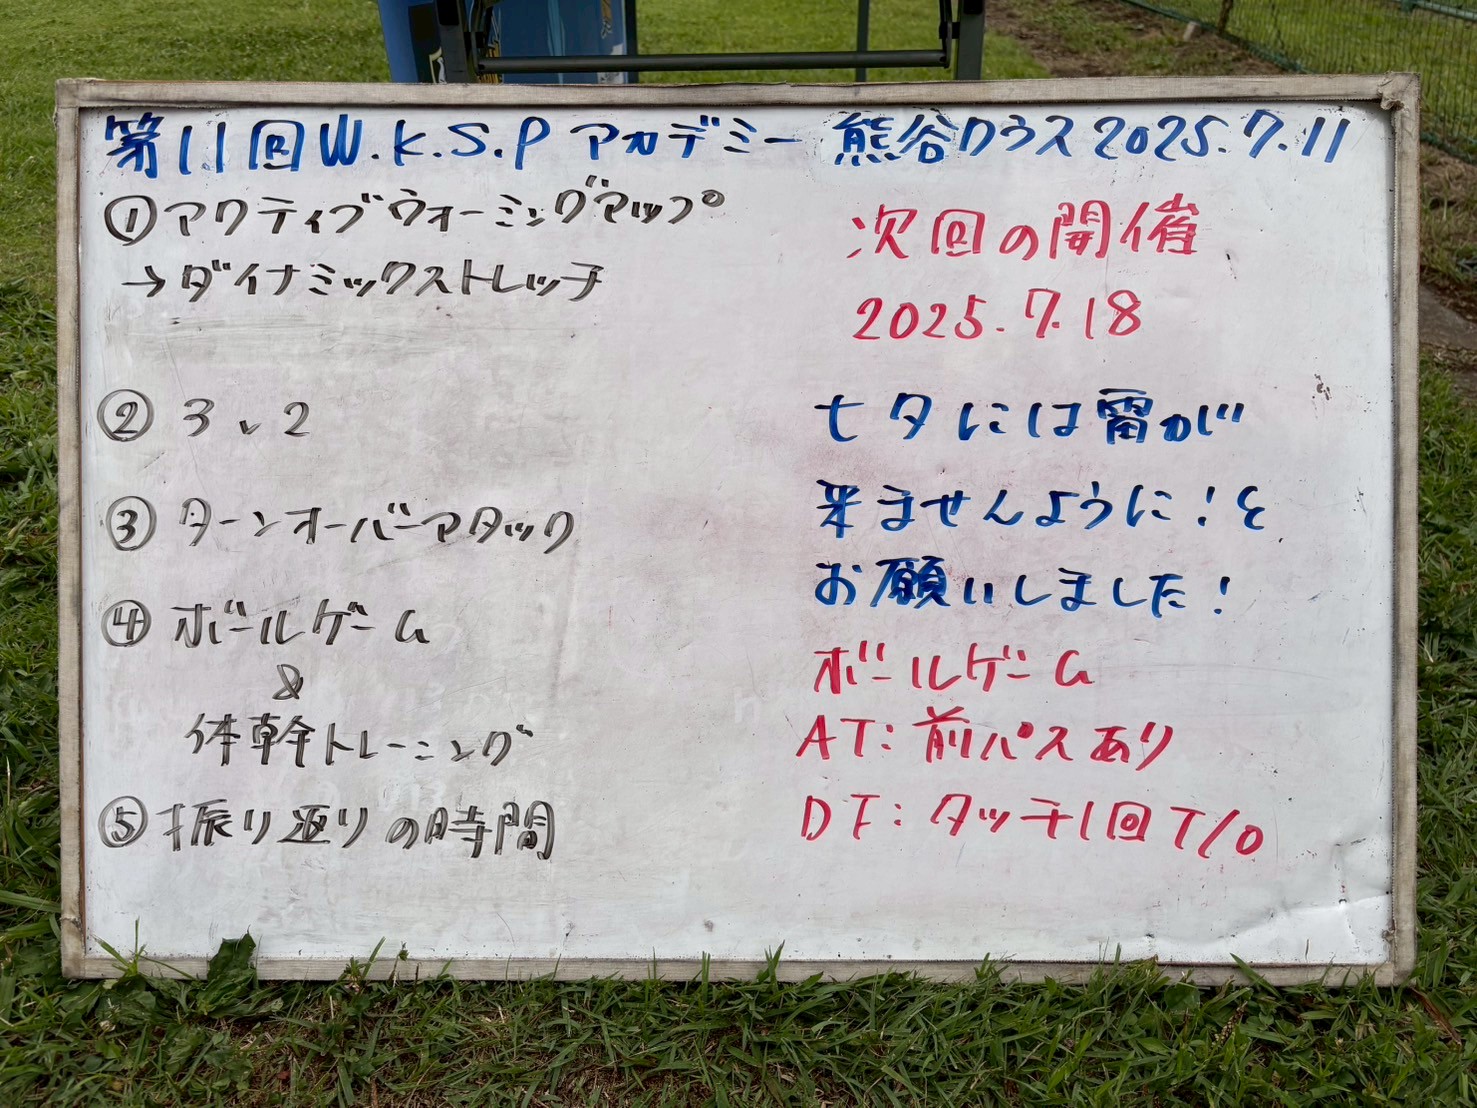 第11回W.K.S.Pアカデミー 熊谷クラス2025.7.11
①アクティブウォーミングアップ
→ダイナミックストレッチ
② 3 v 2
③ ターンオーバーアタック
④ ボールゲーム
&
体幹トレーニング
⑤振り返りの時間
次回の開催
2025.7.18
七夕には雷が
来ませんように！と
お願いしました！
ボールゲーム
AT：前パスあり
DF：タッチ1回T/O